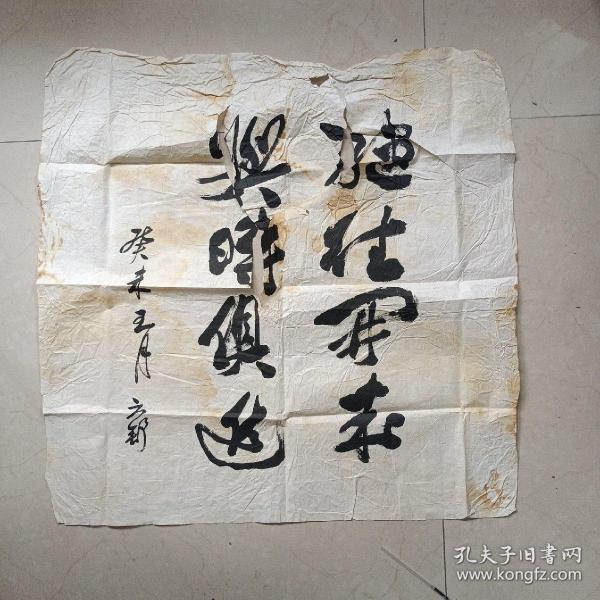 继往开来
與時俱进
癸未五月
孔夫子旧書网
www.kongfz.com